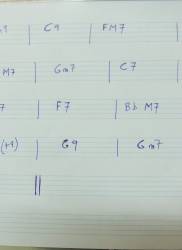 9 | C9 | FM7 |
M7 | Gm7 | C7
7 | F7 | Bb M7
(+9) | G9 | Gm7